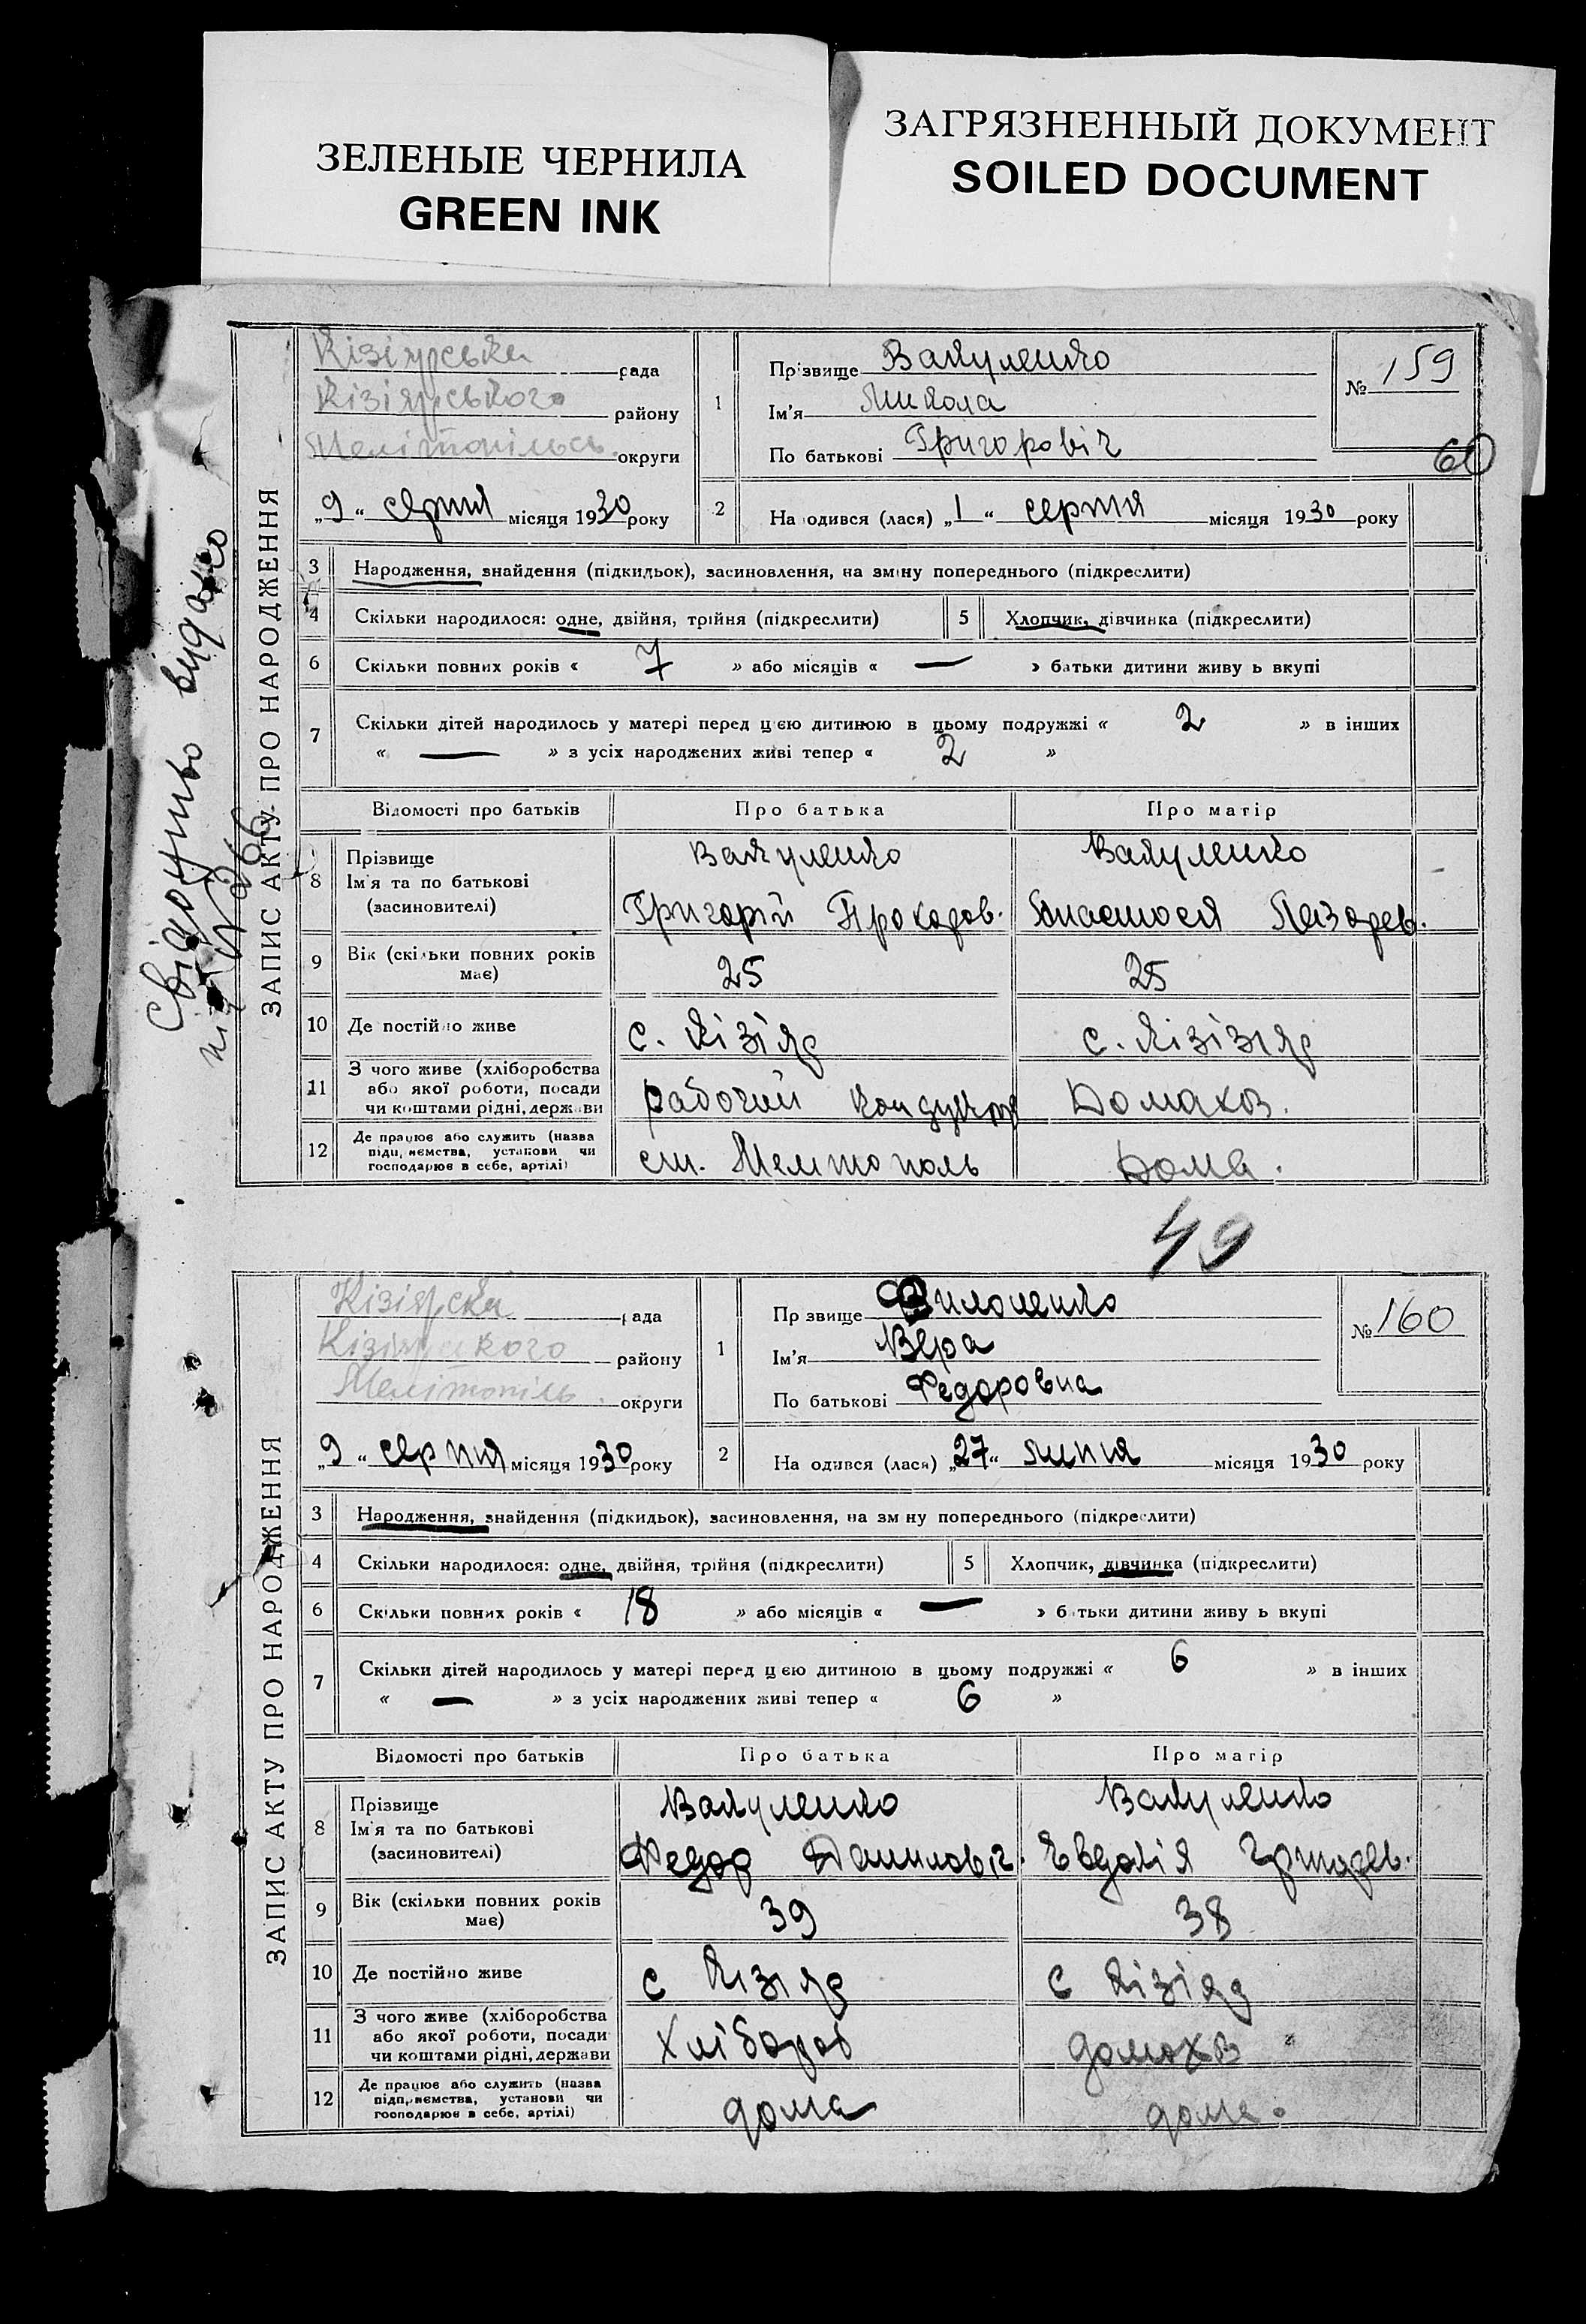 ЗЕЛЕНЫЕ ЧЕРНИЛА
GREEN INK
ЗАГРЯЗНЕННЫЙ ДОКУМЕНТ
SOILED DOCUMENT
Свідоцтво видано
під № 266
ЗАПИС АКТУ ПРО НАРОДЖЕННЯ
Кізіярська рада
Кізіярського району
Мелітопільсь. округи
„9“ серпня місяця 1930 року
1 Прізвище Вакуленко
Ім'я Микола
По батькові Григоровіч
№ 159
60
2 Народився (лася) „1“ серпня місяця 1930 року
3 Народження, знайдення (підкидьок), засиновлення, на зміну попереднього (підкреслити)
4 Скільки народилося: одне, двійня, трійня (підкреслити) 5 Хлопчик, дівчинка (підкреслити)
6 Скільки повних років « 7 » або місяців « — » батьки дитини живуть вкупі
7 Скільки дітей народилось у матері перед цією дитиною в цьому подружжі « 2 » в інших
« — » з усіх народжених живі тепер « 2 »
Відомості про батьків Про батька Про матір
8 Прізвище Вакуленко Вакуленко
Ім'я та по батькові
(засиновителі) Григорій Лазарев.
9 Вік (скільки повних років має) 25 25
10 Де постійно живе с. Кізіяр с. Кізізіяр
11 З чого живе (хліборобства
або якої роботи, посади
чи коштами рідні, держави рабочий Домахоз.
12 Де працює або служить (назва
підприємства, установи чи
господарює в себе, артілі) ст. Мелитополь Дома.
49
ЗАПИС АКТУ ПРО НАРОДЖЕННЯ
Кізіярська рада
Кізіярського району
Мелітопіль. округи
„9“ серпня місяця 1930 року
1 Прізвище
Ім'я Вера
По батькові Федоровна
№ 160
2 Народився (лася) „27“ липня місяця 1930 року
3 Народження, знайдення (підкидьок), засиновлення, на зміну попереднього (підкреслити)
4 Скільки народилося: одне, двійня, трійня (підкреслити) 5 Хлопчик, дівчинка (підкреслити)
6 Скільки повних років « 18 » або місяців « — » батьки дитини живуть вкупі
7 Скільки дітей народилось у матері перед цією дитиною в цьому подружжі « 6 » в інших
« — » з усіх народжених живі тепер « 6 »
Відомості про батьків Про батька Про матір
8 Прізвище Вакуленко Вакуленко
Ім'я та по батькові
(засиновителі) Федор Данилович. Евдокія
9 Вік (скільки повних років має) 39 38
10 Де постійно живе с Кізіяр с Кізіяр
11 З чого живе (хліборобства
або якої роботи, посади
чи коштами рідні, держави Хлібороб домохоз
12 Де працює або служить (назва
підприємства, установи чи
господарює в себе, артілі) дома дома.